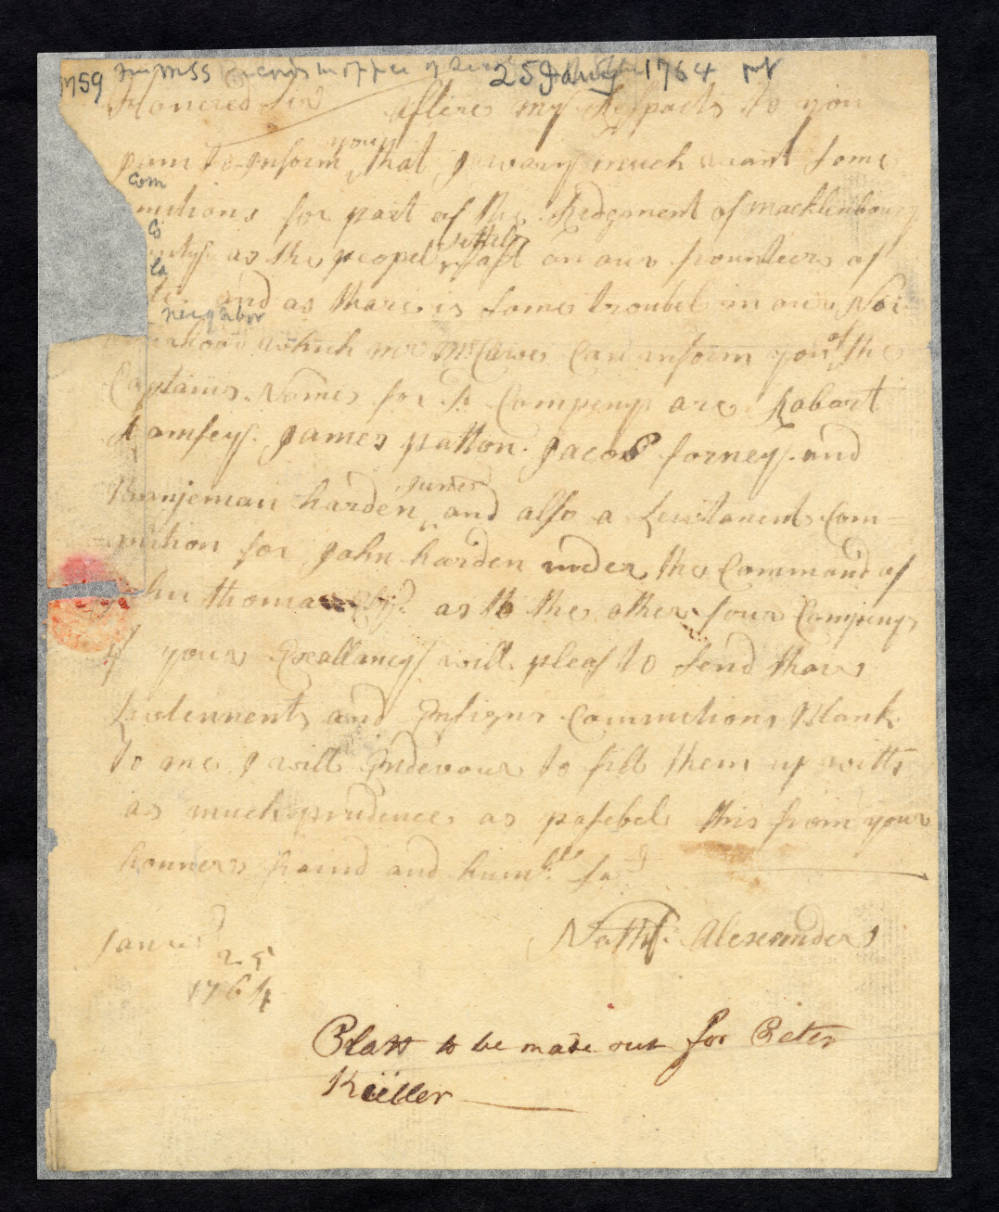 1759 from MSS Records in office of 25 Jany 1764
Honered Sir Aftere my Respacts to you
your
to Inform that I vary much want some
Com
mitions for part of the Redgment of Macklinbourg
Co
settels
ntys as the peopel fast on our frounteers of
La
and as thare is some troubel in our Nei
neighbor
hood which mr McCaws Can inform you of the
Captains Nomes for Compenys are Robart
Ramsey. James patton. Jacob forney. and
junier
Banjeman harden and also a Leiutanent Com=
mition for John harden under the Command of
hn thomas Esqr. as to the other four Compenys
if your Exallancy will pleas to send thare
Leutennents and Insigns Commitions Blank
to me I will Indevour to fill them up with
as much prudence as posebel this from your
honners fraind and humble
Nathl. Alexander
Janured
25
1764
Platt to be made out for Peter
Küller